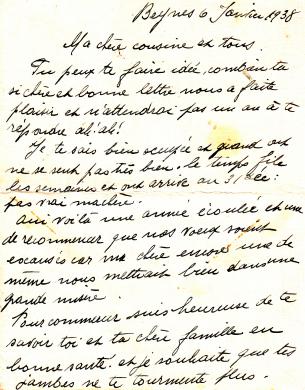 Beynes 6 Janvier 1938
Ma chère cousine et tous.
Tu peux te faire idée, combien ta
si chère et bonne lettre nous a faite
plaisir et n'attendrai pas un an à te
repondre ah! ah!
Je te sais bien occupée et quand on
ne se sent pas très bien, le temps file
les semaines et on arrive au 31 Dec:
pas vrai ma chère.
Oui voilà une année écoulée et une
de recommencer que nos voeux soient
exaucés car ma chère encore une de
même nous mettrait bien dans une
grande misère.
Pour commencer suis heureuse de te
savoir toi et ta chère famille en
bonne santé. et je souhaite que tes
jambes ne te tourmente plus.